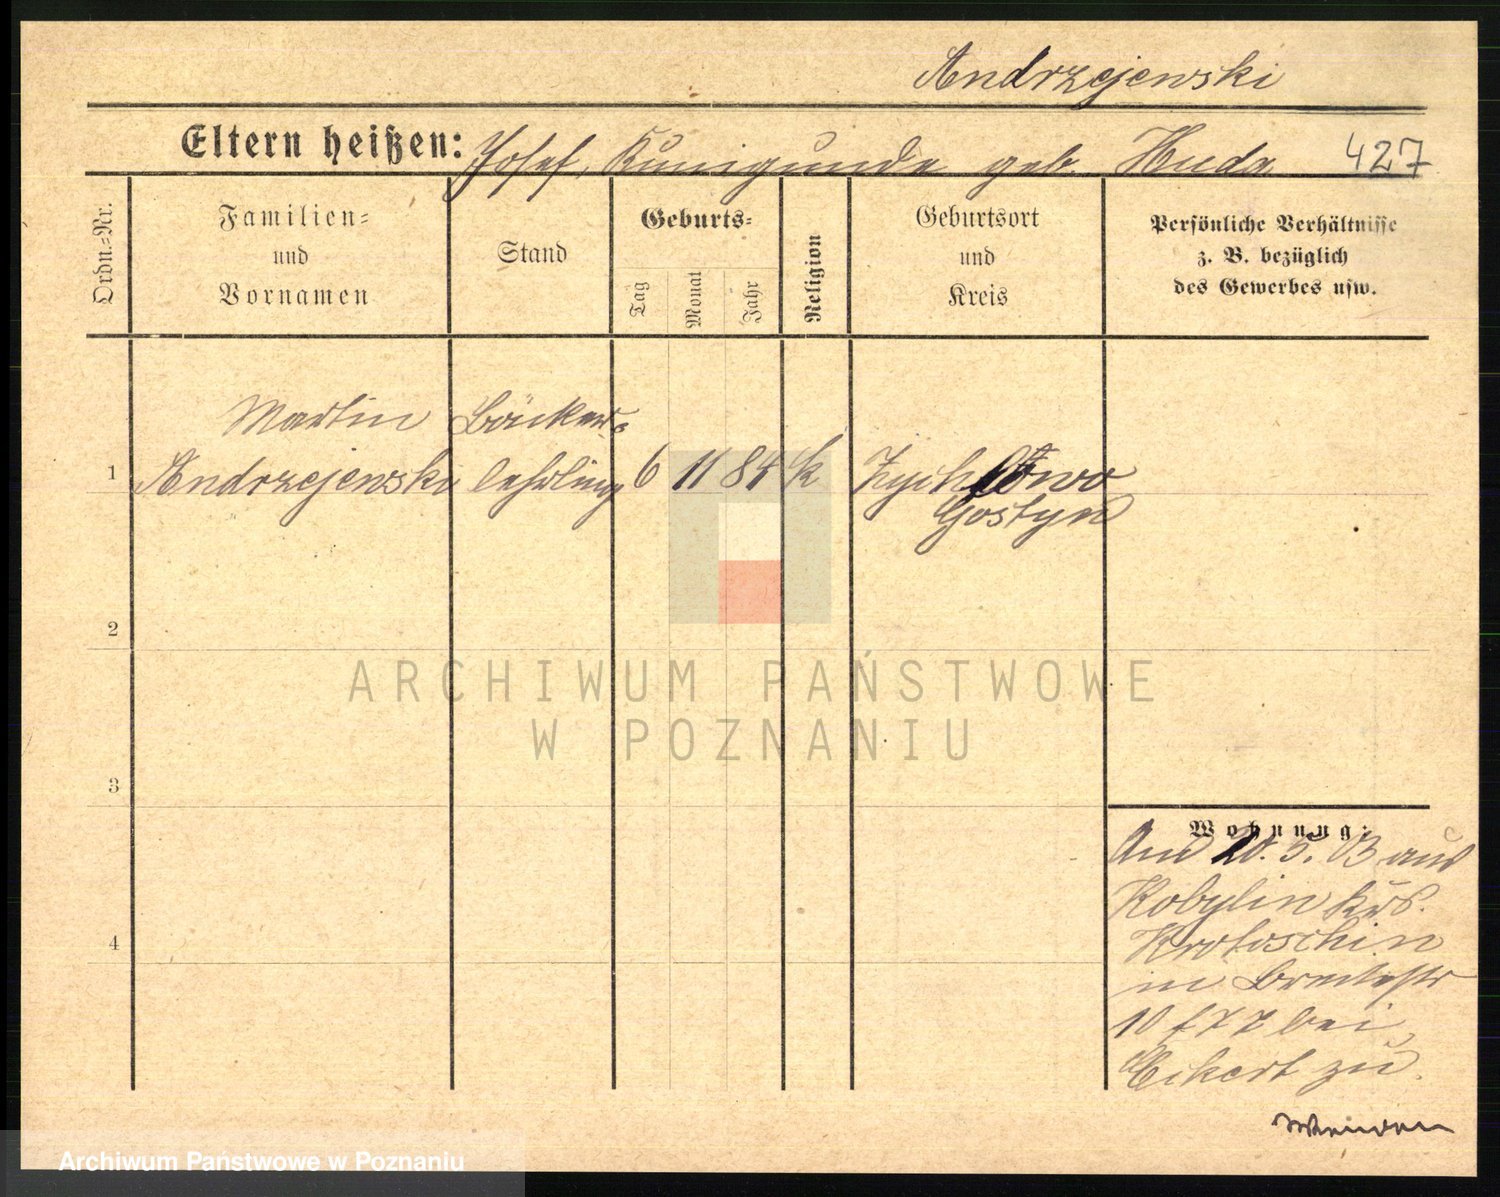 Andrzejewski
Eltern heißen: Josef, Kunigunde geb. Huda 427
Ordn.=Nr.
Familien=
und
Vornamen
Stand
Geburts=
Tag
Monat
Jahr
Religion
Geburtsort
und
Kreis
Persönliche Verhältnisse
z. B. bezüglich
des Gewerbes usw.
Martin Bäcker=
1 Andrzejewski lehrling 6 11 84 k Zychlewo
Gostyn
2
3
4
Wohnung:
Am 20. 5. 03 aus
Kobylin Krs.
Krotoschin
in Breitestr
10 bei
Eckert zu
ARCHIWUM PAŃSTWOWE
W POZNANIU
Archiwum Państwowe w Poznaniu